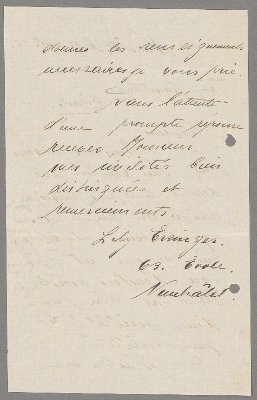 donner les renseignements
nécessaires je vous prie.
Dans l'attente
d'une prompte réponse
recevez Monsieur
mes salutations bien
distinguées et
remerciements.
Lily
63. Ecole.
Neuchâtel.